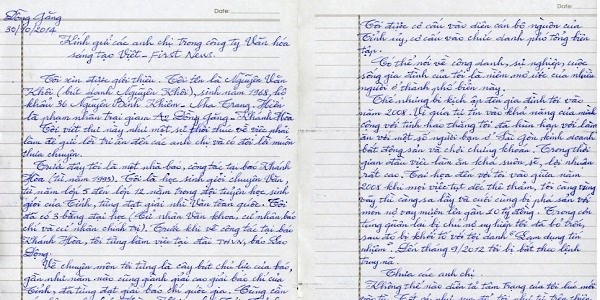 Đồng Găng
30/10/2014
Date:
Kính gửi các anh chị trong công ty Văn hóa
sáng tạo Việt - First News.
Tôi xin được giới thiệu. Tôi tên là Nguyễn Văn
Khôi (bút danh Nguyễn Khôi), sinh năm 1968, hộ
khẩu 36 Nguyễn Bỉnh Khiêm - Nha Trang. Hiện
là phạm nhân trại giam A2 Đồng Găng - Khánh Hòa
Tôi viết thư này như một sự thôi thúc về việc phải
làm để gửi lời tri ân đến các anh chị và có đôi lời muốn
thưa chuyện.
Trước đây tôi là một nhà báo, công tác tại báo Khánh
Hòa (từ năm 1995). Tôi là học sinh giỏi chuyên Văn,
từ năm lớp 5 đến lớp 12 nằm trong đội tuyển học sinh
giỏi của Tỉnh, từng đạt giải nhì Văn toàn quốc. Tôi
đã có 3 bằng đại học (Cử nhân Văn khoa, cử nhân báo
chí và cử nhân chính trị). Trước khi về công tác tại báo
Khánh Hòa, tôi từng làm việc tại đài THVN, báo Lao
Động.
Về chuyên môn tôi từng là cây bút chủ lực của báo,
gần như năm nào cũng giành giải cao giải báo chí của
Tỉnh, đã từng đạt giải báo chí quốc gia. Từng cán
Date:
Tôi được cơ cấu vào diện cán bộ nguồn của
Tỉnh ủy, cơ cấu vào chức danh phó tổng biên
tập.
Có thể nói về công danh, sự nghiệp, cuộc
sống gia đình của tôi là niềm mơ ước của nhiều
người ở thành phố biển này.
Thế nhưng bi kịch ập đến gia đình tôi vào
năm 2008. Vì quá tự tin vào khả năng của mình
cộng với tính hao thắng tôi đã hùn hạp với làm
ăn với một số người bạn ở Sài Gòn kinh doanh
bất động sản và chơi chứng khoán. Trong thời
gian đầu việc làm ăn khá suôn sẻ, lợi nhuận
rất cao. Tai họa đến với tôi vào giữa năm
2008 khi mọi việc tụt dốc thê thảm, tôi càng vùng
vẫy thì càng sa lầy và cuối cùng bị phá sản với
món nợ vay mượn lên gần 10 tỷ đồng. Trong cơn
túng quẫn lại bị chủ nợ
sau đó bị khởi tố với tội danh "Lạm dụng tín
nhiệm". Đến tháng 9/2012 tôi bị bắt theo lệnh
truy nã.
Thưa các anh chị
Không thể nào diễn tả tâm trạng của tôi lúc mới